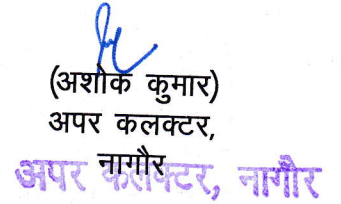 (अशोक कुमार)
अपर कलक्टर,
नागौर
अपर कलक्टर, नागौर